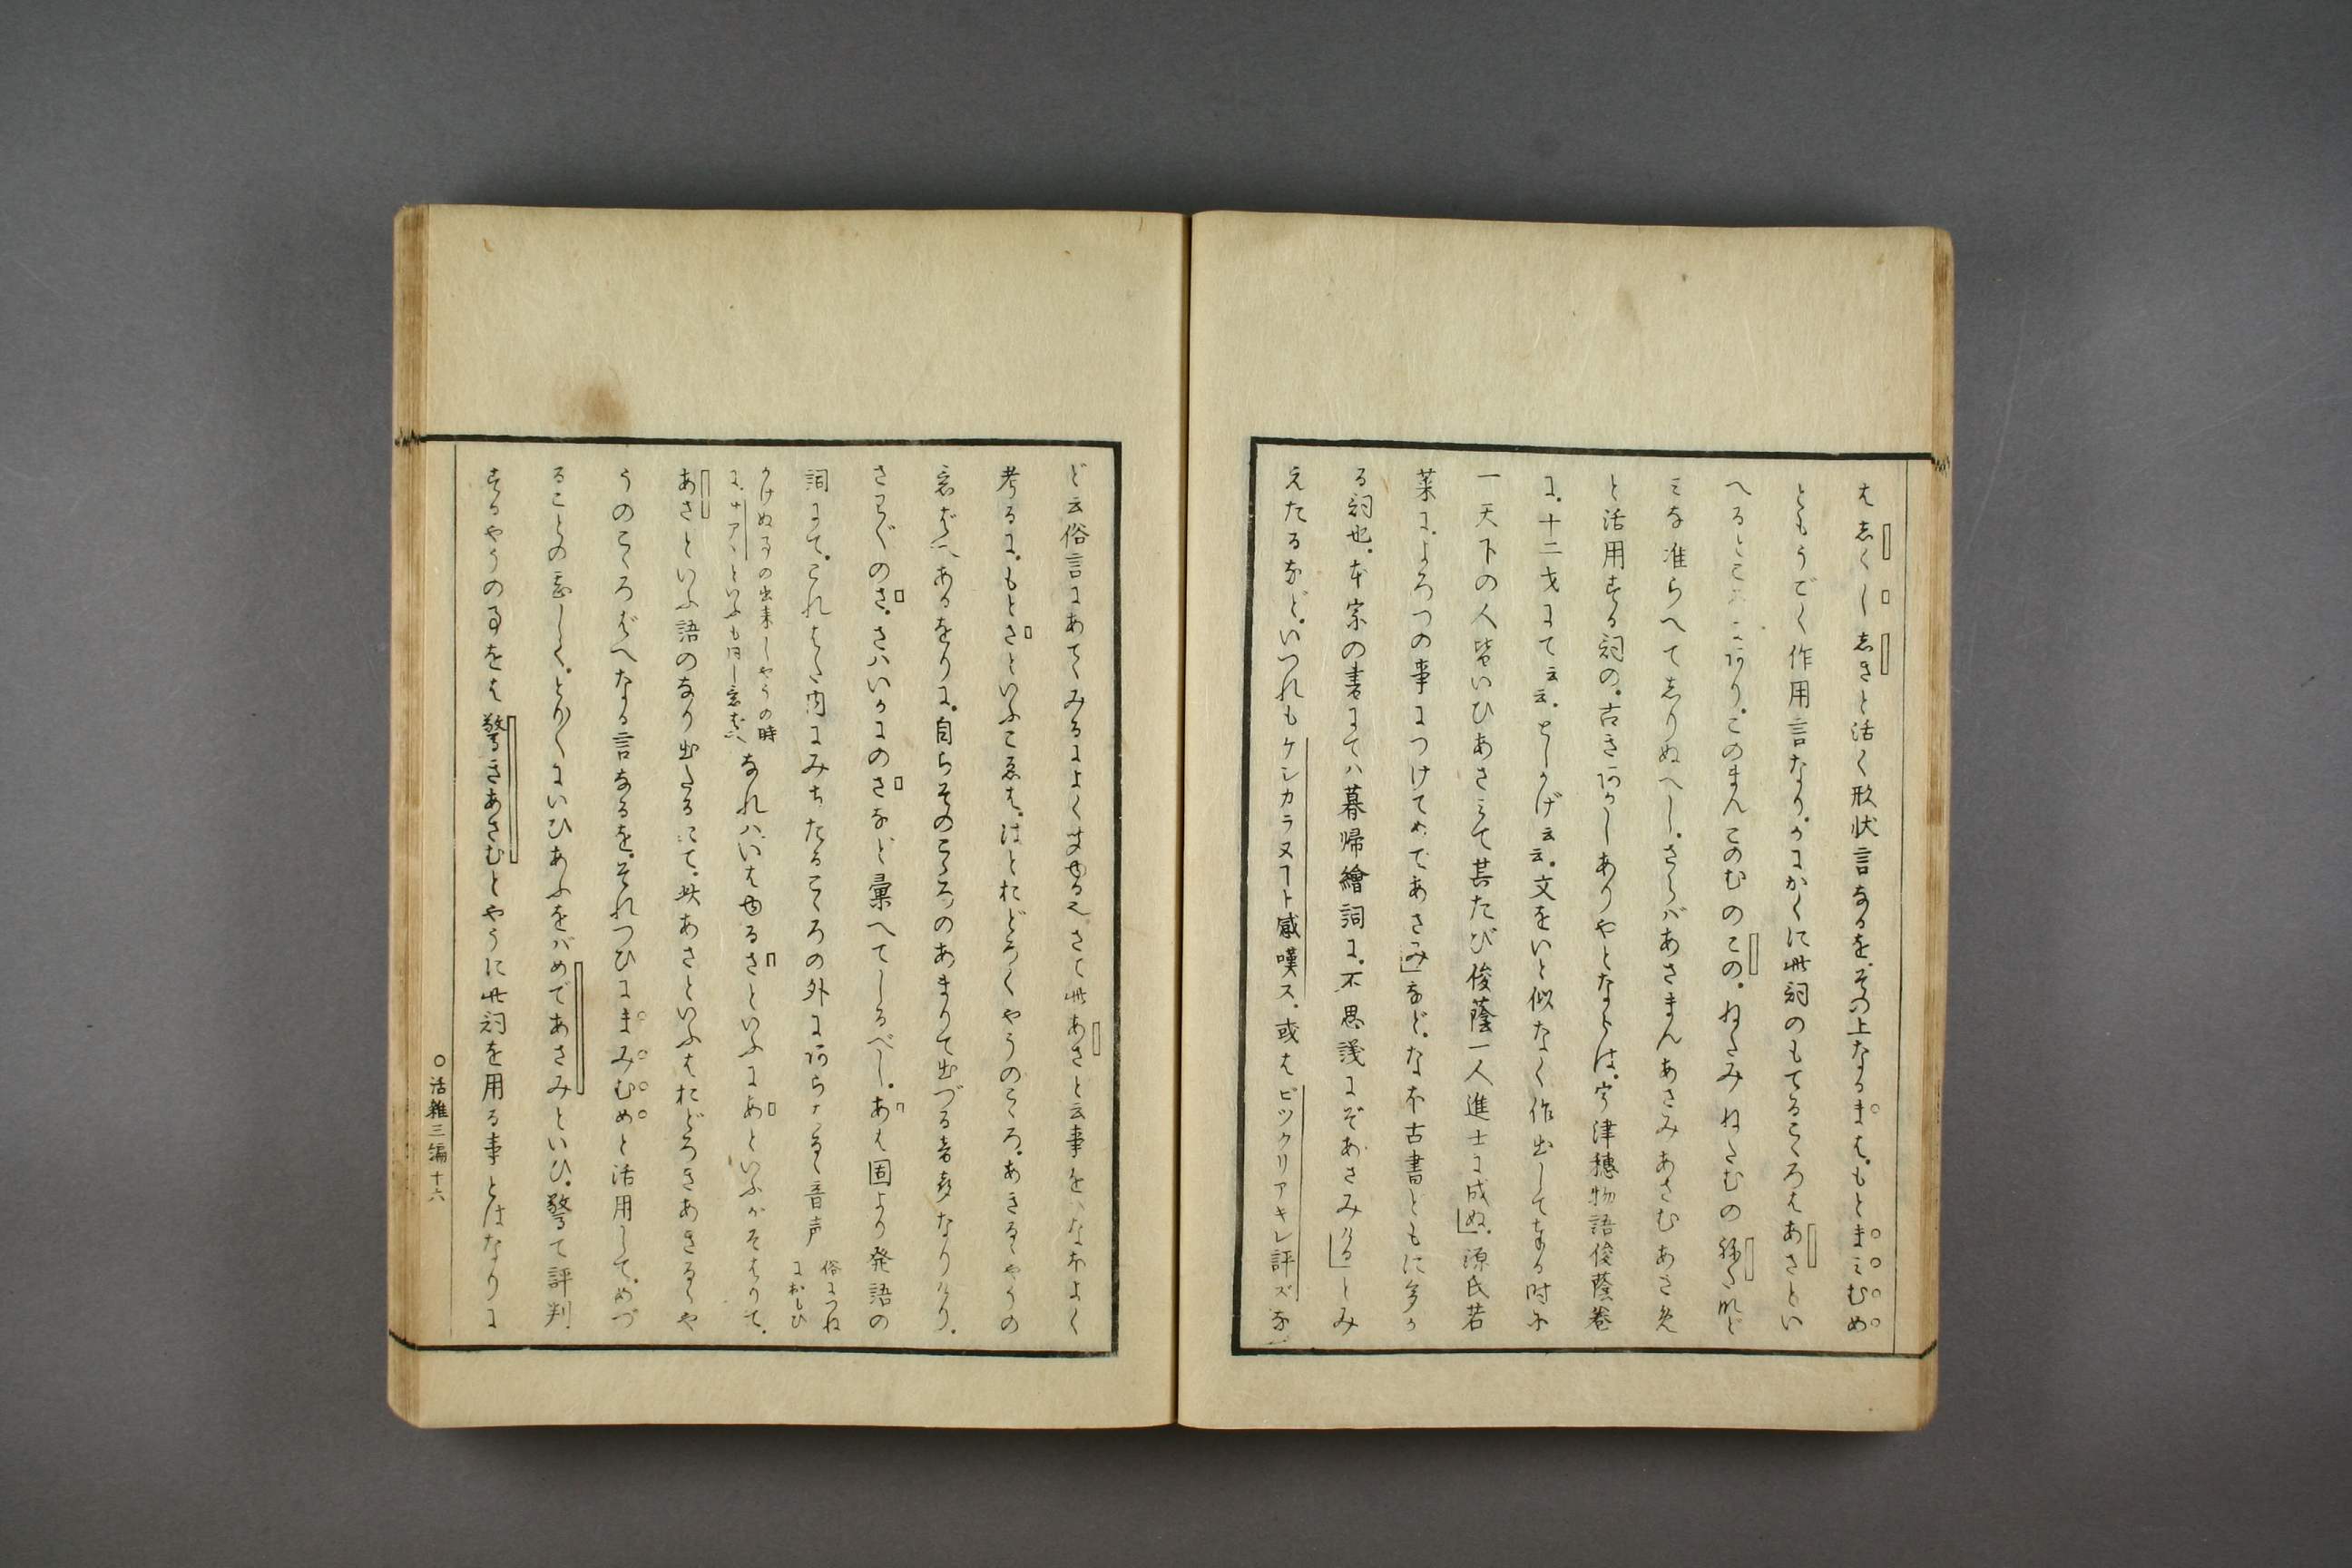 は志くし志きと活く形状言なるを。その上なるまは。もとまみむめ
ともうごく作用言なり。かにかくに此詞のもてるこゝろはあさとい
へるところにあり。このまんこのむのこの。ねたみねたむのねたなど
みな准らへて志りぬへし。さらバあさまんあさみあさむあさめ
と活用する詞の。古きあかしありやとならは。宇津穂物語俊蔭巻
に。十二才にて云云。としかげ云云。文をいと似なく作出して
一天下の人皆いひあさみて其たび俊蔭一人進士に成ぬ」源氏若
菜に。よろつの事につけてめであさみ」など。なほ古書ともに多か
る詞也。本宗の書にてハ暮帰繪詞に。不思議にぞあさみける」とみ
えたるなど。いつれもケシカラヌコト感嘆ス。或はビツクリアキレ評ズな
ど云俗言にあてゝみるによく さて此あさと云事を なほよく
考るに。もとさといふこゑは。はとおどろくやうのこゝろ。あきるゝやうの
意ばへあるをりに。自らそのこゝろのあまりて出づる音声なりけり。
さわぐのさ。さハいかにのさなど彙へてしるべし。あは固より発語の
詞にて。これはた内にみちたるこゝろの外にあらはるゝ音声 俗につね
におもひ
かけぬるの出来しやうの時
に。サアヽといふも同し意ばへ なれハ。いはゆるさといふにあといふがそはりて。
あさといふ語のなり出たるにて。此あさといふはおどろきあきるゝや
うのこゝろばへなる言なるを。それつひにまみむめと活用して。めづ
ることの甚しく。とりくにいひあふをバめであさみといひ。驚て評判
するやうの事をは驚きあさむとやうに此詞を用る事とはなりに
○活雜三編十六